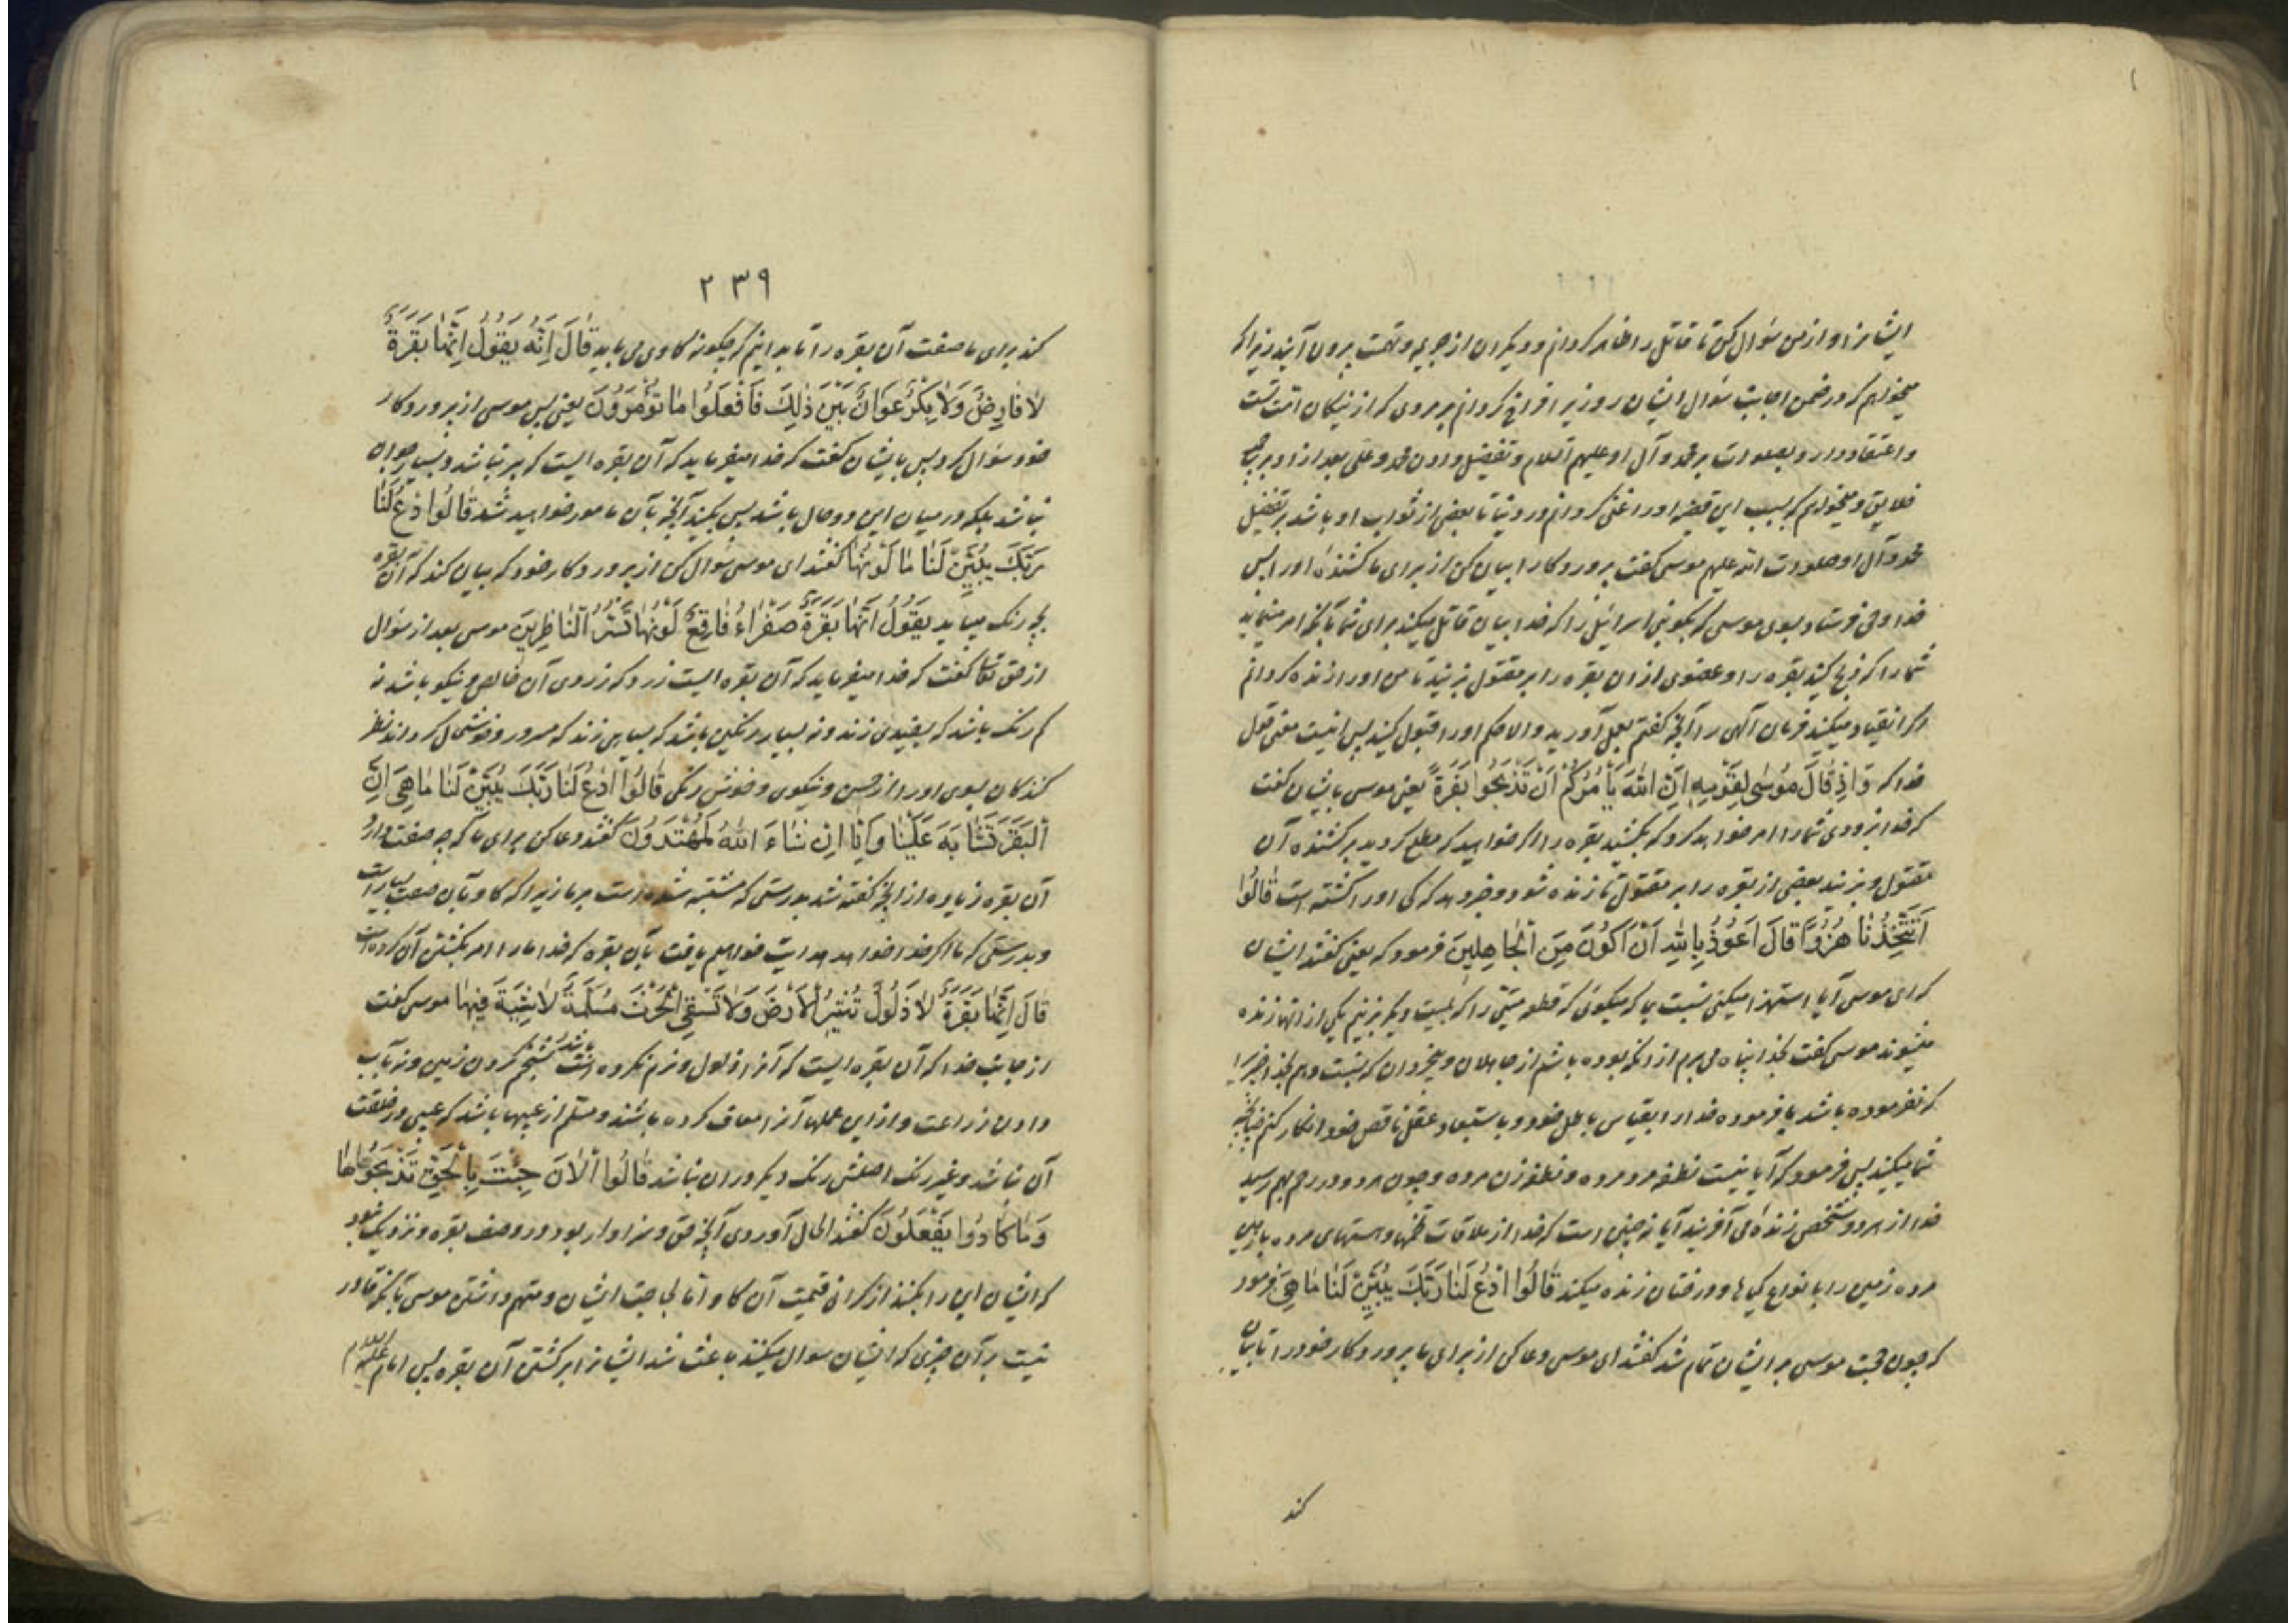 ایشانرا و از من سؤال کن تا قاتل را ظاهر کردانم و دیکران از جریمه و تهمت بیرون آیند زیرا که
میخواهم که در ضمن اجابت سؤال ایشان روزیرا فراخ کردانم بر مردی که از نیکان امت تست
و اعتقاد دارد بصلوات بر محمد و آل او علیهم السلام و تفضیل دادن محمد و علی بعد از او بر جمیع
خلایق و میخواهم که بسبب این قضیه او را غنی کردانم در دنیا تا بعضی از ثواب او باشد بر تفضیل
محمد و آل او صلوات الله علیهم موسی کفت پروردکارا بیان کن از برای ما کشندۀ او را پس
خدا وحی فرستاد بسوی موسی که بکو بنی اسرائیل را که خدا بیان قاتل میکند برای شما بآنکه امر مینماید
شما را که ذبح کنید بقره را و عضوی از ان بقره را بر مقتول بزنید تا من او را زنده کردانم
اکر انقیاد میکنید فرمان آلهی را آنچه کفتم بعمل آورید و الا حکم او را قبول کنید پس اینست معنی قول
خدا که وَاِذْ قَالَ مُوسٰی لِقَوْمِهِ اِنَّ اللهَ یَأْمُرُکُمْ اَنْ تَذْبَحُوا بَقَرَةً یعنی موسی بایشان کفت
که خدا بزودی شما را امر خواهد کرد که بکشید بقره را اکر خواهید که مطلع کردید بر کشنده آن
مقتول و بزنید بعضی از بقره را بر مقتول تا زنده شود و خبر دهد که کی او را کشته است قٰالُوا
اَتَتَّخِذُنٰا هُزُوًا قالَ اَعُوْذُ بِاللهِ اَنْ اَکُونَ مِنَ الْجاهِلِینَ فرمود که یعنی کفتند ایشان
که ای موسی آیا استهزا میکنی نسبت بما که میکوئی که قطعه میتی را که بمیت دیکر بزنیم یکی از انها زنده
میشوند موسی کفت بخدا پناه می برم از انکه بوده باشم از جاهلان و بیخردان که نسبت دهم بخدا چیزیرا
که نفرموده باشد یا فرموده خدا را بقیاس باطل خود و باستبعاد عقل ناقص خود انکار کنم چنانچه
شما میکنید پس فرمود که آیا نیست نطفه مرد مرده و نطفه زن مرده و چون هر دو در رحم بهم رسید
خدا از هر دو شخص زندۀ می آفریند آیا نه چنین است که خدا از ملاقات تخمها و هستهای مرده با زمین
مرده زمین را بانواع کیاها و درختان زنده میکند قٰالُوا ادْعُ لَنٰا رَبَّکَ یُبَیِّنْ لَنٰا مٰا هِیَ فرمود
که چون حجت موسی بر ایشان تمام شد کفتند ای موسی دعا کن از برای ما پروردکار خود را تا بیان
کند
۲۳۹
کند برای ما صفت آن بقره را تا بدانیم که چکونه کاوی می باید قٰالَ اِنَّهُ یَقُولُ اِنَّهٰا بَقَرَةٌ
لاٰ فٰارِضٌ وَلاٰ بِکْرٌ عَوَانٌ بَیْنَ ذٰلِکَ فَافْعَلُوا مٰا تُؤْمَرُونَ یعنی پس موسی از پروردکار
خود سؤال کرد پس بایشان کفت که خدا میفرماید که آن بقره ایست که پیر نباشد و بسیار جوان
نباشد بلکه در میان این دو حال باشد پس بکنید آنچه بآن مامور خواهید شد قٰالُوا ادْعُ لَنٰا
رَبَّکَ یُبَیِّنْ لَنٰا مٰا لَوْنُهٰا کفتند ای موسی سؤال کن از پروردکار خود که بیان کند که آن بقره
بچه رنک میباید یَقُولُ اِنَّهٰا بَقَرَةٌ صَفْرٰاءُ فٰاقِعٌ لَوْنُهٰا تَسُرُّ النّٰاظِرِینَ موسی بعد از سؤال
از حق تعالی کفت که خدا میفرماید که آن بقره ایست زرد که زردی آن خالص و نیکو باشد نه
کم رنک باشد که بسفیدی زند و نه بسیار رنکین باشد که بسیاهی زند که مسرور و خوشحال کرداند نظر
کنندکان بسوی او را از حسن و نیکوی و خوش رنکی قٰالُوا ادْعُ لَنٰا رَبَّکَ یُبَیِّنْ لَنٰا مٰا هِیَ اِنَّ
الْبَقَرَ تَشٰابَهَ عَلَیْنٰا وَاِنّٰا اِنْ شٰاءَ اللهُ لَمُهْتَدُونَ کفتند دعا کن برای ما که چه صفت دارد
آن بقره زیاده از آنچه کفته شد بدرستی که مشتبه شده است بر ما زیرا که کاو بآن صفت بسیار است
و بدرستی که ما اکر خدا خواهد هدایت خواهیم یافت بآن بقره که خدا ما را امر بکشتن آن کرده است
قٰالَ اِنَّهٰا بَقَرَةٌ لاٰ ذَلُولٌ تُثِیرُ الْاَرْضَ وَلاٰ تَسْقِی الْحَرْثَ مُسَلَّمَةٌ لاٰ شِیَةَ فِیهٰا موسی کفت
از جانب خدا که آن بقره ایست که آنرا ذلول و نرم نکرده باشند بشخم کردن زمین و نه بآب
دادن زراعت و از این عملها آنرا معاف کرده باشند و مسلم از عیبها باشد که عیبی در خلقت
آن نباشد و غیر رنک اصلش رنک دیکر در ان نباشد قٰالُوا الْاٰنَ جِئْتَ بِالْحَقِّ فَذَبَحُوهٰا
وَمٰا کٰادُوا یَفْعَلُونَ کفتند الحال آوردی آنچه حق و سزاوار بود در وصف بقره و نزدیک نبود
که ایشان این را بکنند از کرانی قیمت آن کاو اما لجاجت ایشان و متهم داشتن موسی بآنکه قادر
نیست بر آن چیزی که ایشان سوال میکنند باعث شد ایشانرا بر کشتن آن بقره پس امام علیه السلام